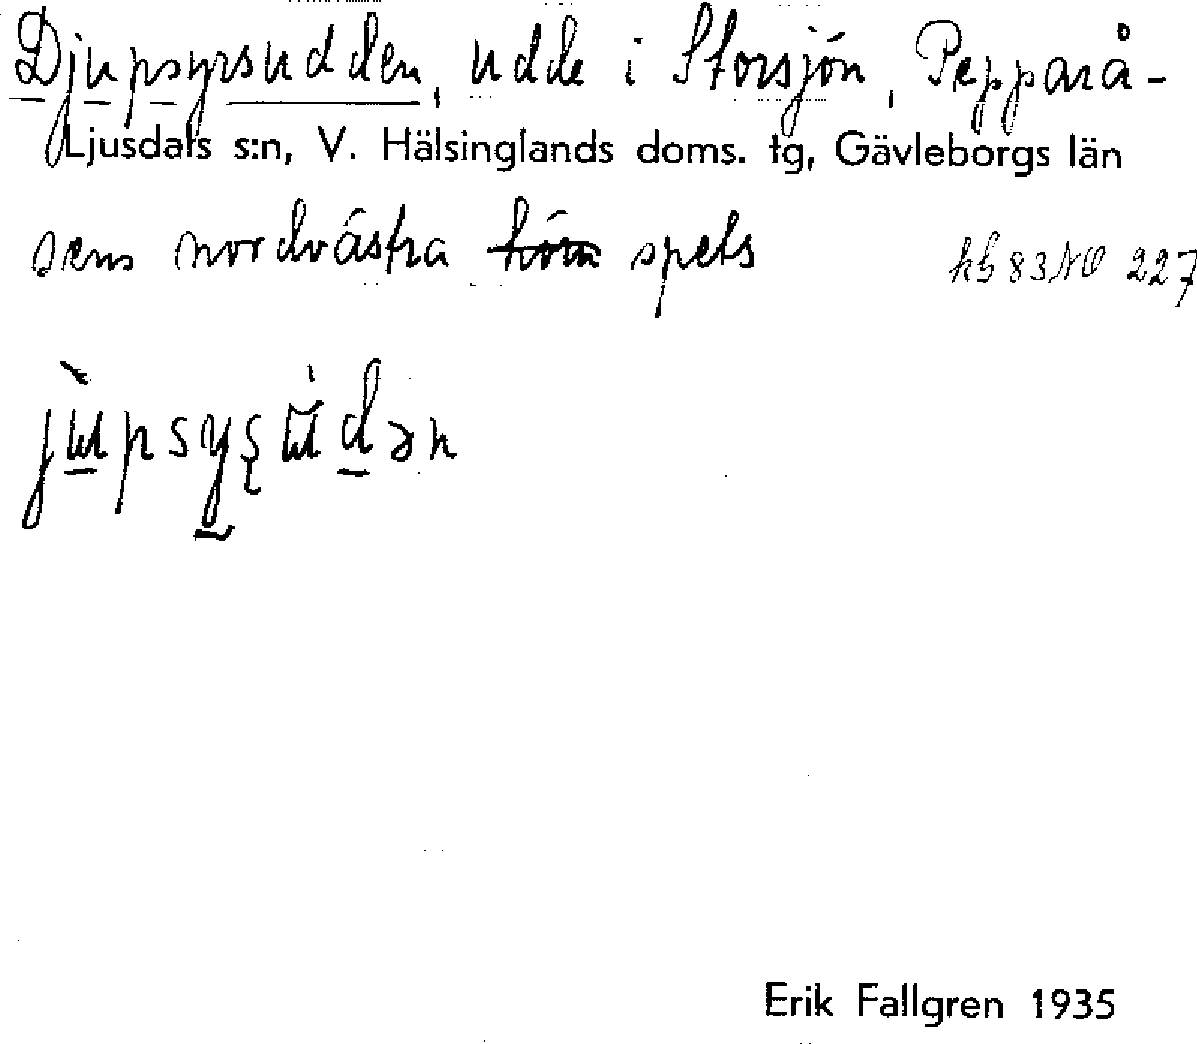 Djupsyrsudden, udde i Storsjön, Pepparå-
Ljusdals s:n, V. Hälsinglands doms. tg, Gävleborgs län
sens nordvästra hörn spets
hg 83 NO 227
Erik Fallgren 1935